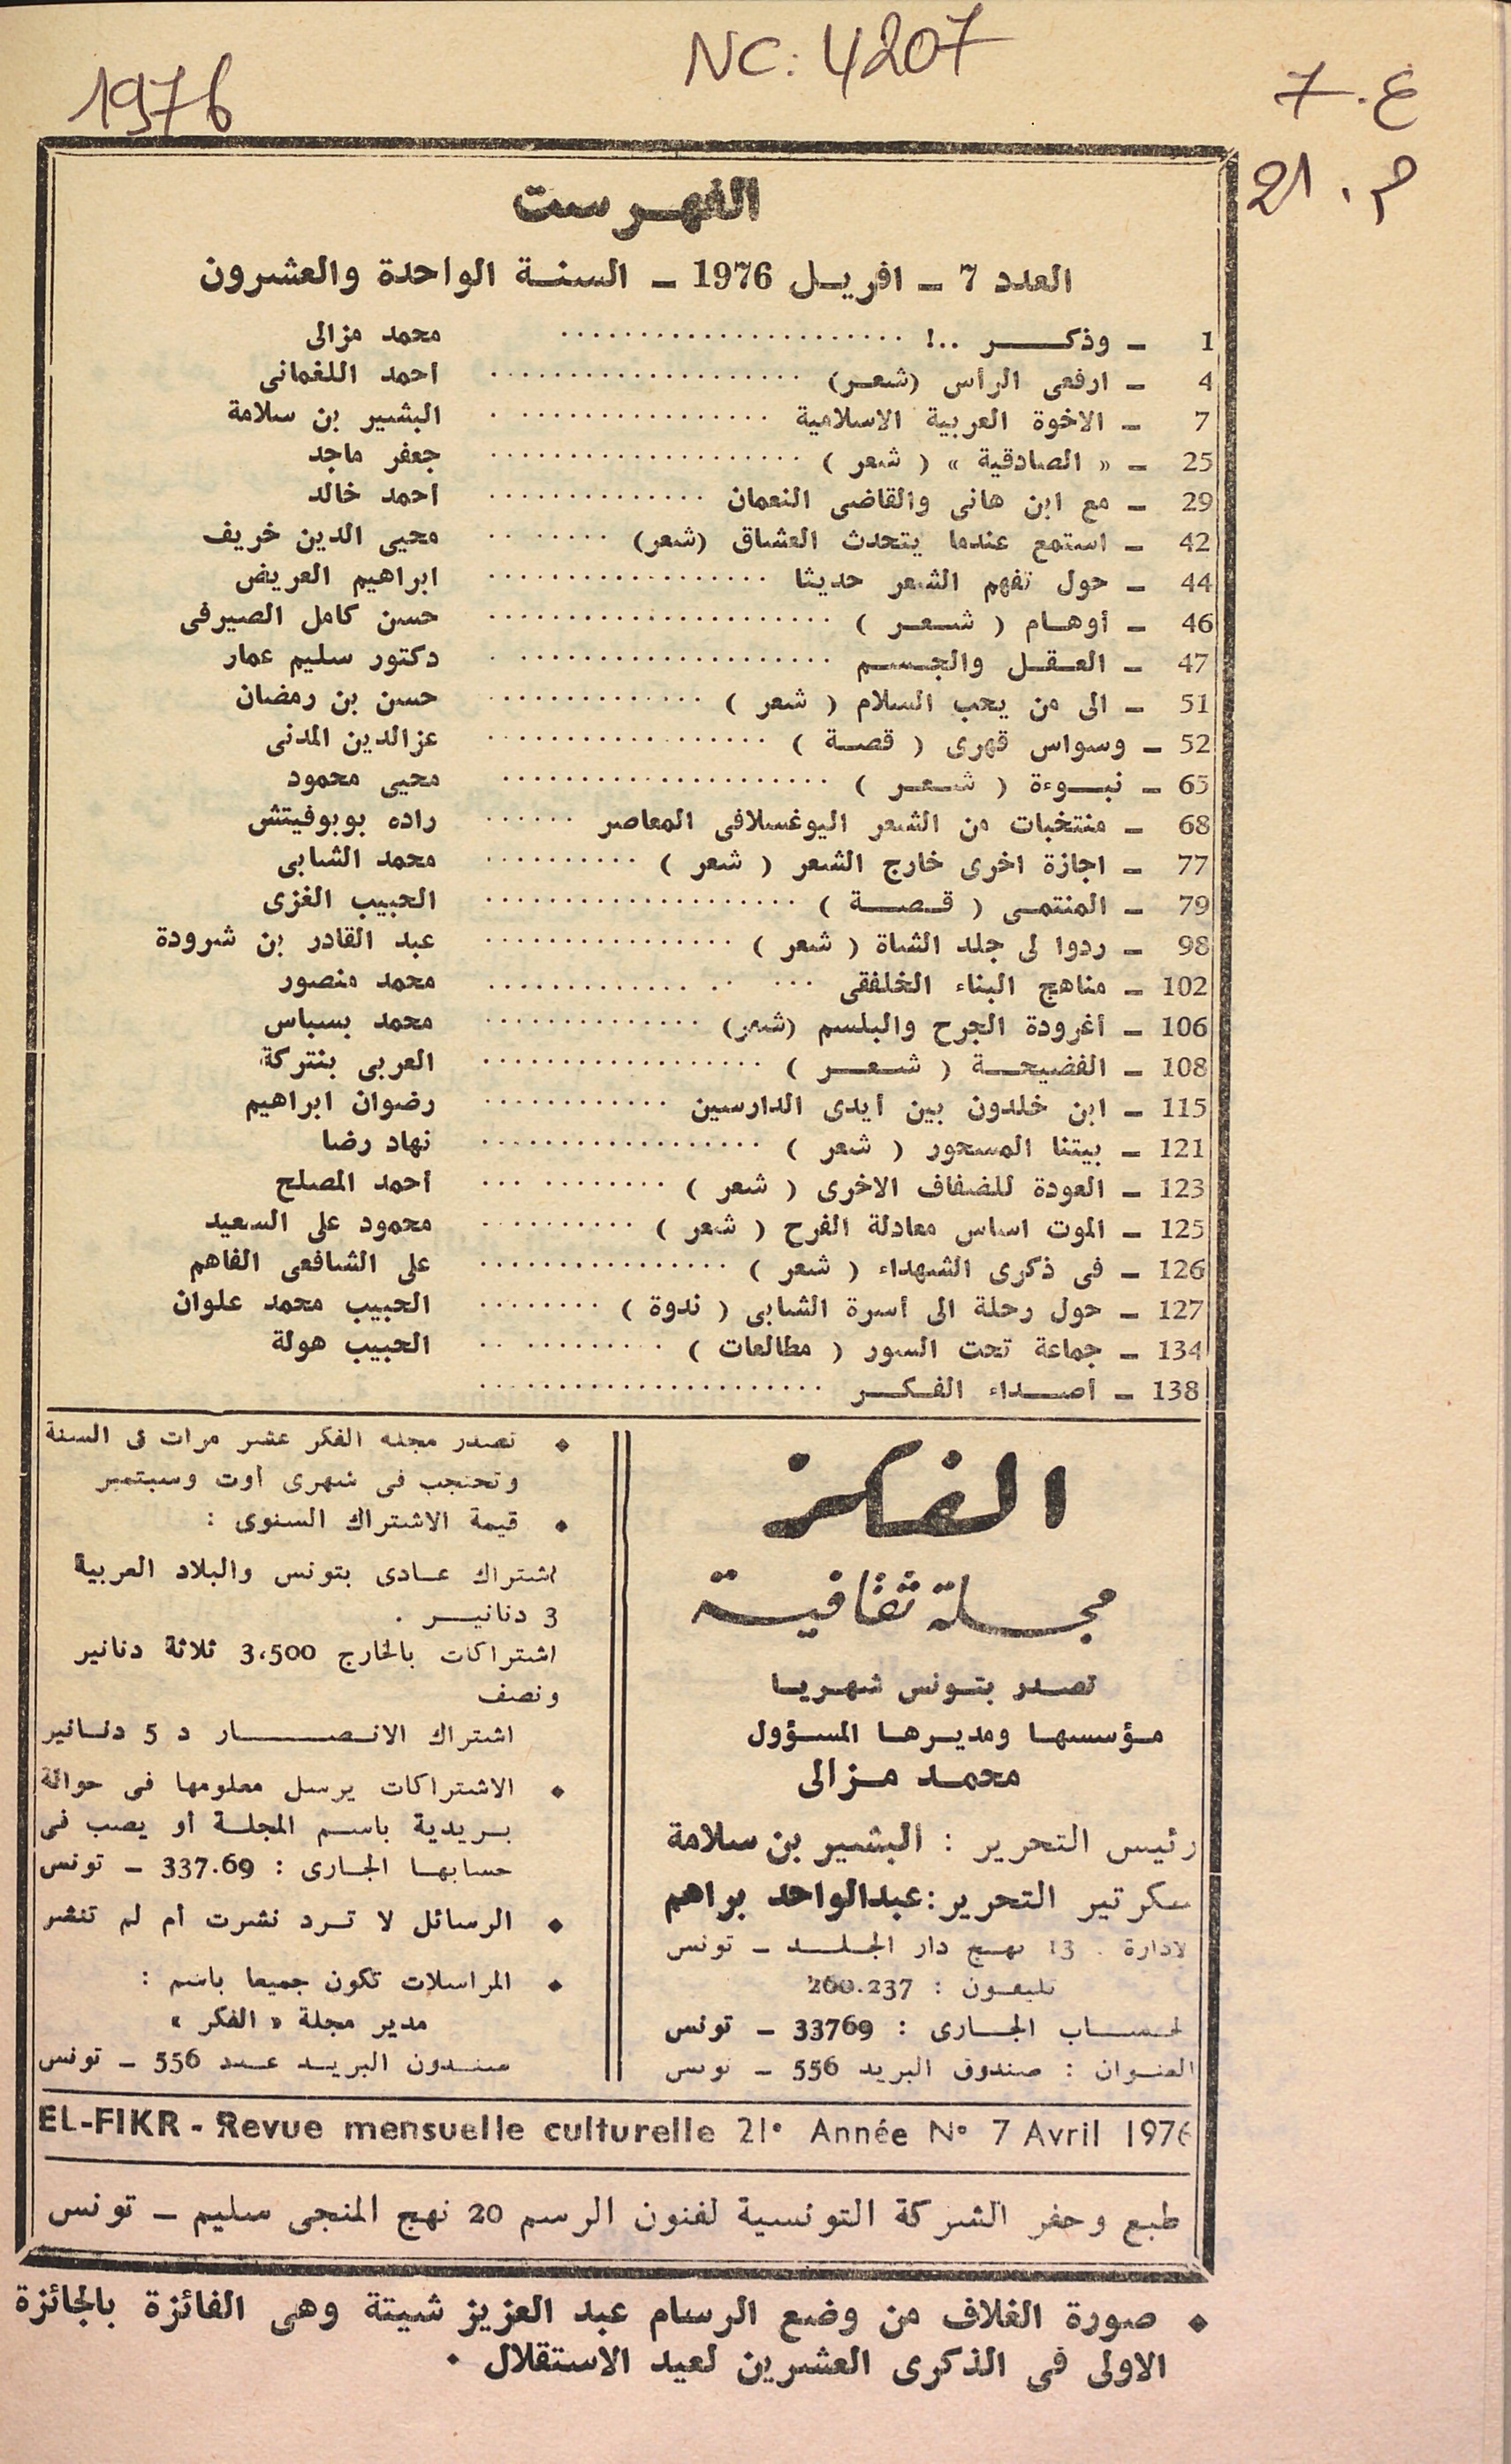 NC: 4207
1976
ع. 7
م. 21
الفهرست
العدد 7 ــ افريل 1976 ــ السنة الواحدة والعشرون
1 ــ وذكر ..! محمد مزالى
4 ــ ارفعى الرأس (شعر) احمد اللغمانى
7 ــ الاخوة العربية الاسلامية البشير بن سلامة
25 ــ « الصادقية » ( شعر ) جعفر ماجد
29 ــ مع ابن هانى والقاضى النعمان احمد خالد
42 ــ استمع عندما يتحدث العشاق (شعر) محيى الدين خريف
44 ــ حول تفهم الشعر حديثا ابراهيم العريض
46 ــ أوهام ( شعر ) حسن كامل الصيرفى
47 ــ العقل والجسم دكتور سليم عمار
51 ــ الى من يحب السلام ( شعر ) حسن بن رمضان
52 ــ وسواس قهرى ( قصة ) عزالدين المدنى
65 ــ نبوءة ( شعر ) محيى محمود
68 ــ منتخبات من الشعر اليوغسلافى المعاصر راده بوبوفيتش
77 ــ اجازة اخرى خارج الشعر ( شعر ) محمد الشابى
79 ــ المنتمى ( قصة ) الحبيب الغزى
98 ــ ردوا لى جلد الشاة ( شعر ) عبد القادر بن شرودة
102 ــ مناهج البناء الخلفقى محمد منصور
106 ــ أغرودة الجرح والبلسم (شعر) محمد بسباس
108 ــ الفضيحة ( شعر ) العربى بنتركة
115 ــ ابن خلدون بين أيدى الدارسين رضوان ابراهيم
121 ــ بيتنا المسحور ( شعر ) نهاد رضا
123 ــ العودة للضفاف الاخرى ( شعر ) أحمد المصلح
125 ــ الموت اساس معادلة الفرح ( شعر ) محمود على السعيد
126 ــ فى ذكرى الشهداء ( شعر ) على الشافعى الفاهم
127 ــ حول رحلة الى أسرة الشابى ( ندوة ) الحبيب محمد علوان
134 ــ جماعة تحت السور ( مطالعات ) الحبيب هولة
138 ــ أصداء الفكر
الفكر
مجلة ثقافية
تصدر بتونس شهريا
مؤسسها ومديرها المسؤول
محمد مزالى
رئيس التحرير : البشير بن سلامة
سكرتير التحرير : عبدالواحد براهم
لادارة . 13 نهج دار الجلد ــ تونس
تليفون : 260.237
لحساب الجارى : 33769 ــ تونس
العنوان : صندوق البريد 556 ــ تونس
♦ تصدر مجلة الفكر عشر مرات فى السنة
وتحتجب فى شهرى أوت وسبتمبر
♦ قيمة الاشتراك السنوى :
اشتراك عادى بتونس والبلاد العربية
3 دنانير .
اشتراكات بالخارج 3،500 ثلاثة دنانير
ونصف
اشتراك الانصار د 5 دنانير
♦ الاشتراكات يرسل معلومها فى حوالة
بريدية باسم المجلة أو يصب فى
حسابها الجارى : 337.69 ــ تونس
♦ الرسائل لا ترد نشرت أم لم تنشر
♦ المراسلات تكون جميعا باسم :
مدير مجلة « الفكر »
صندون البريد عدد 556 ــ تونس
EL-FIKR - Revue mensuelle culturelle 21° Année N° 7 Avril 1976
طبع وحفر الشركة التونسية لفنون الرسم 20 نهج المنجى سليم ــ تونس
♦ صورة الغلاف من وضع الرسام عبد العزيز شيتة وهى الفائزة بالجائزة
الاولى فى الذكرى العشرين لعيد الاستقلال .